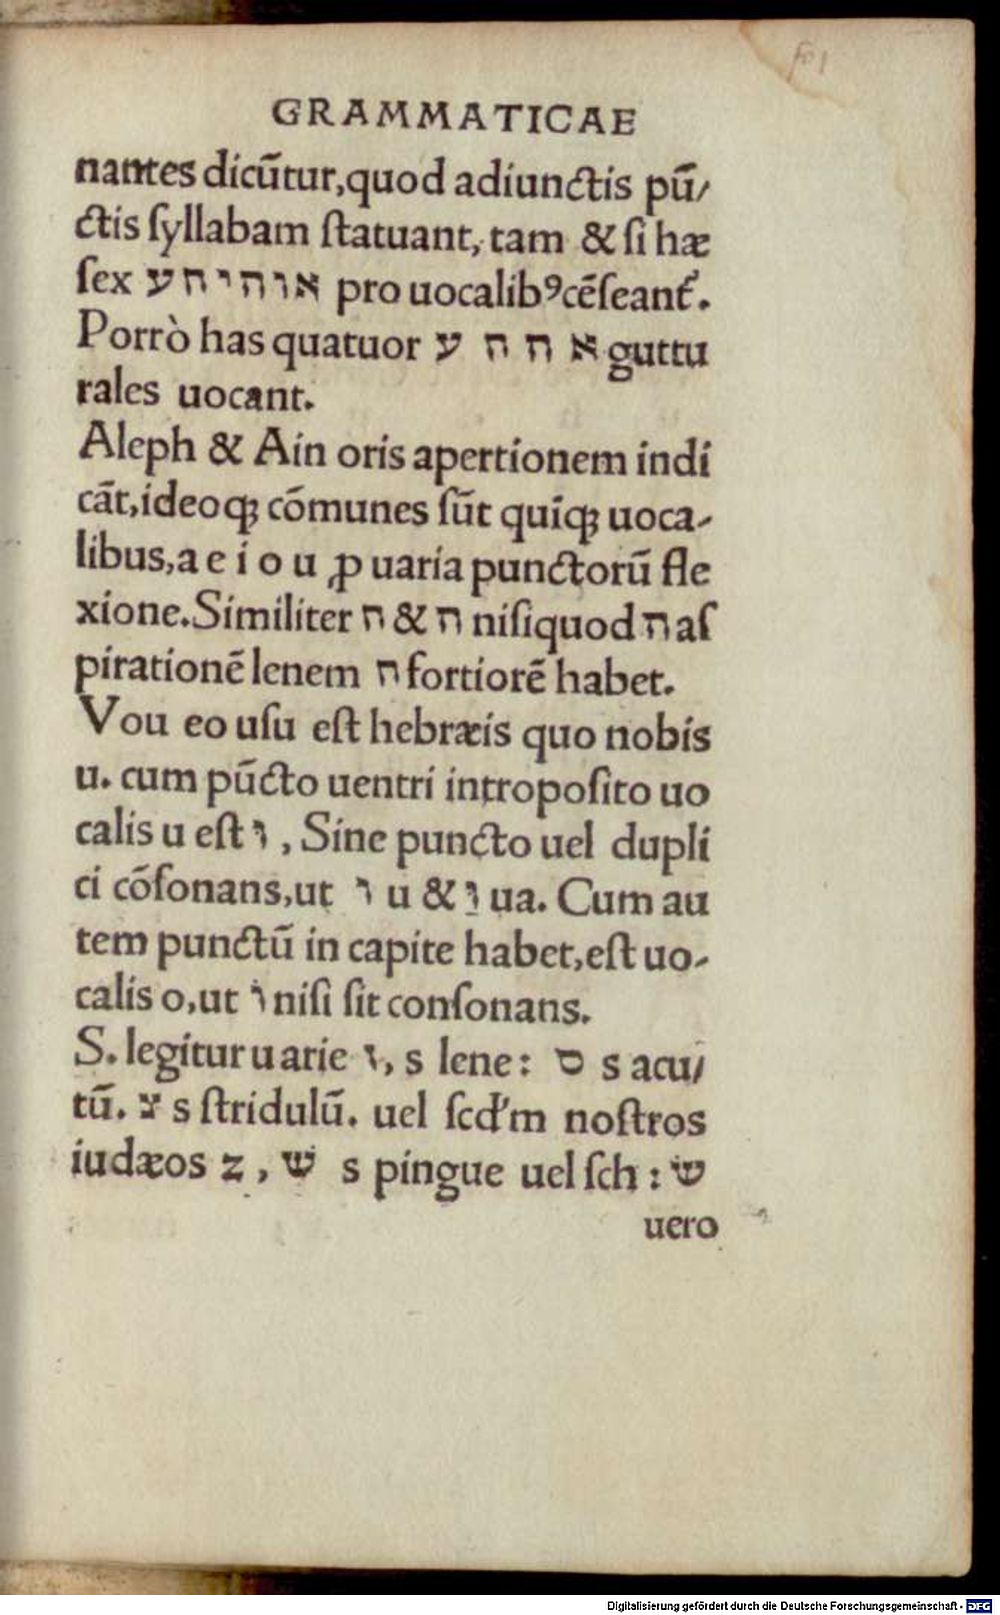 fol
GRAMMATICAE
nantes dicũtur,quod adiunctis pũ/
ctis ſyllabam ſtatuant, tam & ſi hæ
ſex אוהיחע pro uocalibꝰcẽſeant᷑.
Porrò has quatuor א ה ח ע guttu
rales uocant.
Aleph & Ain oris apertionem indi
cãt,ideoqꝫ cõmunes ſũt quĩqꝫ uoca-
libus,a e i o u ꝓ uaria punctorũ fle
xione.Similiter ח & ה niſiquod ה aſ
pirationẽ lenem ח fortiorẽ habet.
Vou eo uſu eſt hebræis quo nobis
u. cum pũcto uentri intropoſito uo
calis u eſt וּ , Sine puncto uel dupli
ci cõſonans,ut ו u & וָ ua. Cum au
tem punctũ in capite habet,eſt uo-
calis o,ut וֹ niſi ſit conſonans.
S. legitur uarie ז, s lene: ס s acu/
tũ. צ s ſtridulũ. uel ſcd'm noſtros
iudæos z , שׁ s pingue uel ſch : שׂ
uero
Digitalisierung gefördert durch die Deutsche Forschungsgemeinschaft - DFG